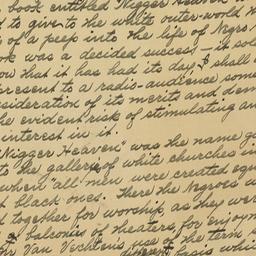 book entitled "Nigger Heaven"
d to give to the white outer-world
of a peep into the life of Negro
ok was a decided success — it sol
ou that it has had its day, I shall
present to a radio-audience som
sideration of its merits and dem
the evident risk of stimulating an
interest in it.
Nigger Heaven" was the name ga
to the gallery of white churches i
when "all men were created equ
t black ones. There the Negroes w
d together for worship, as they wer
balconies of theaters for enjoym
Mr Van Vechten's use of the term
basis whic